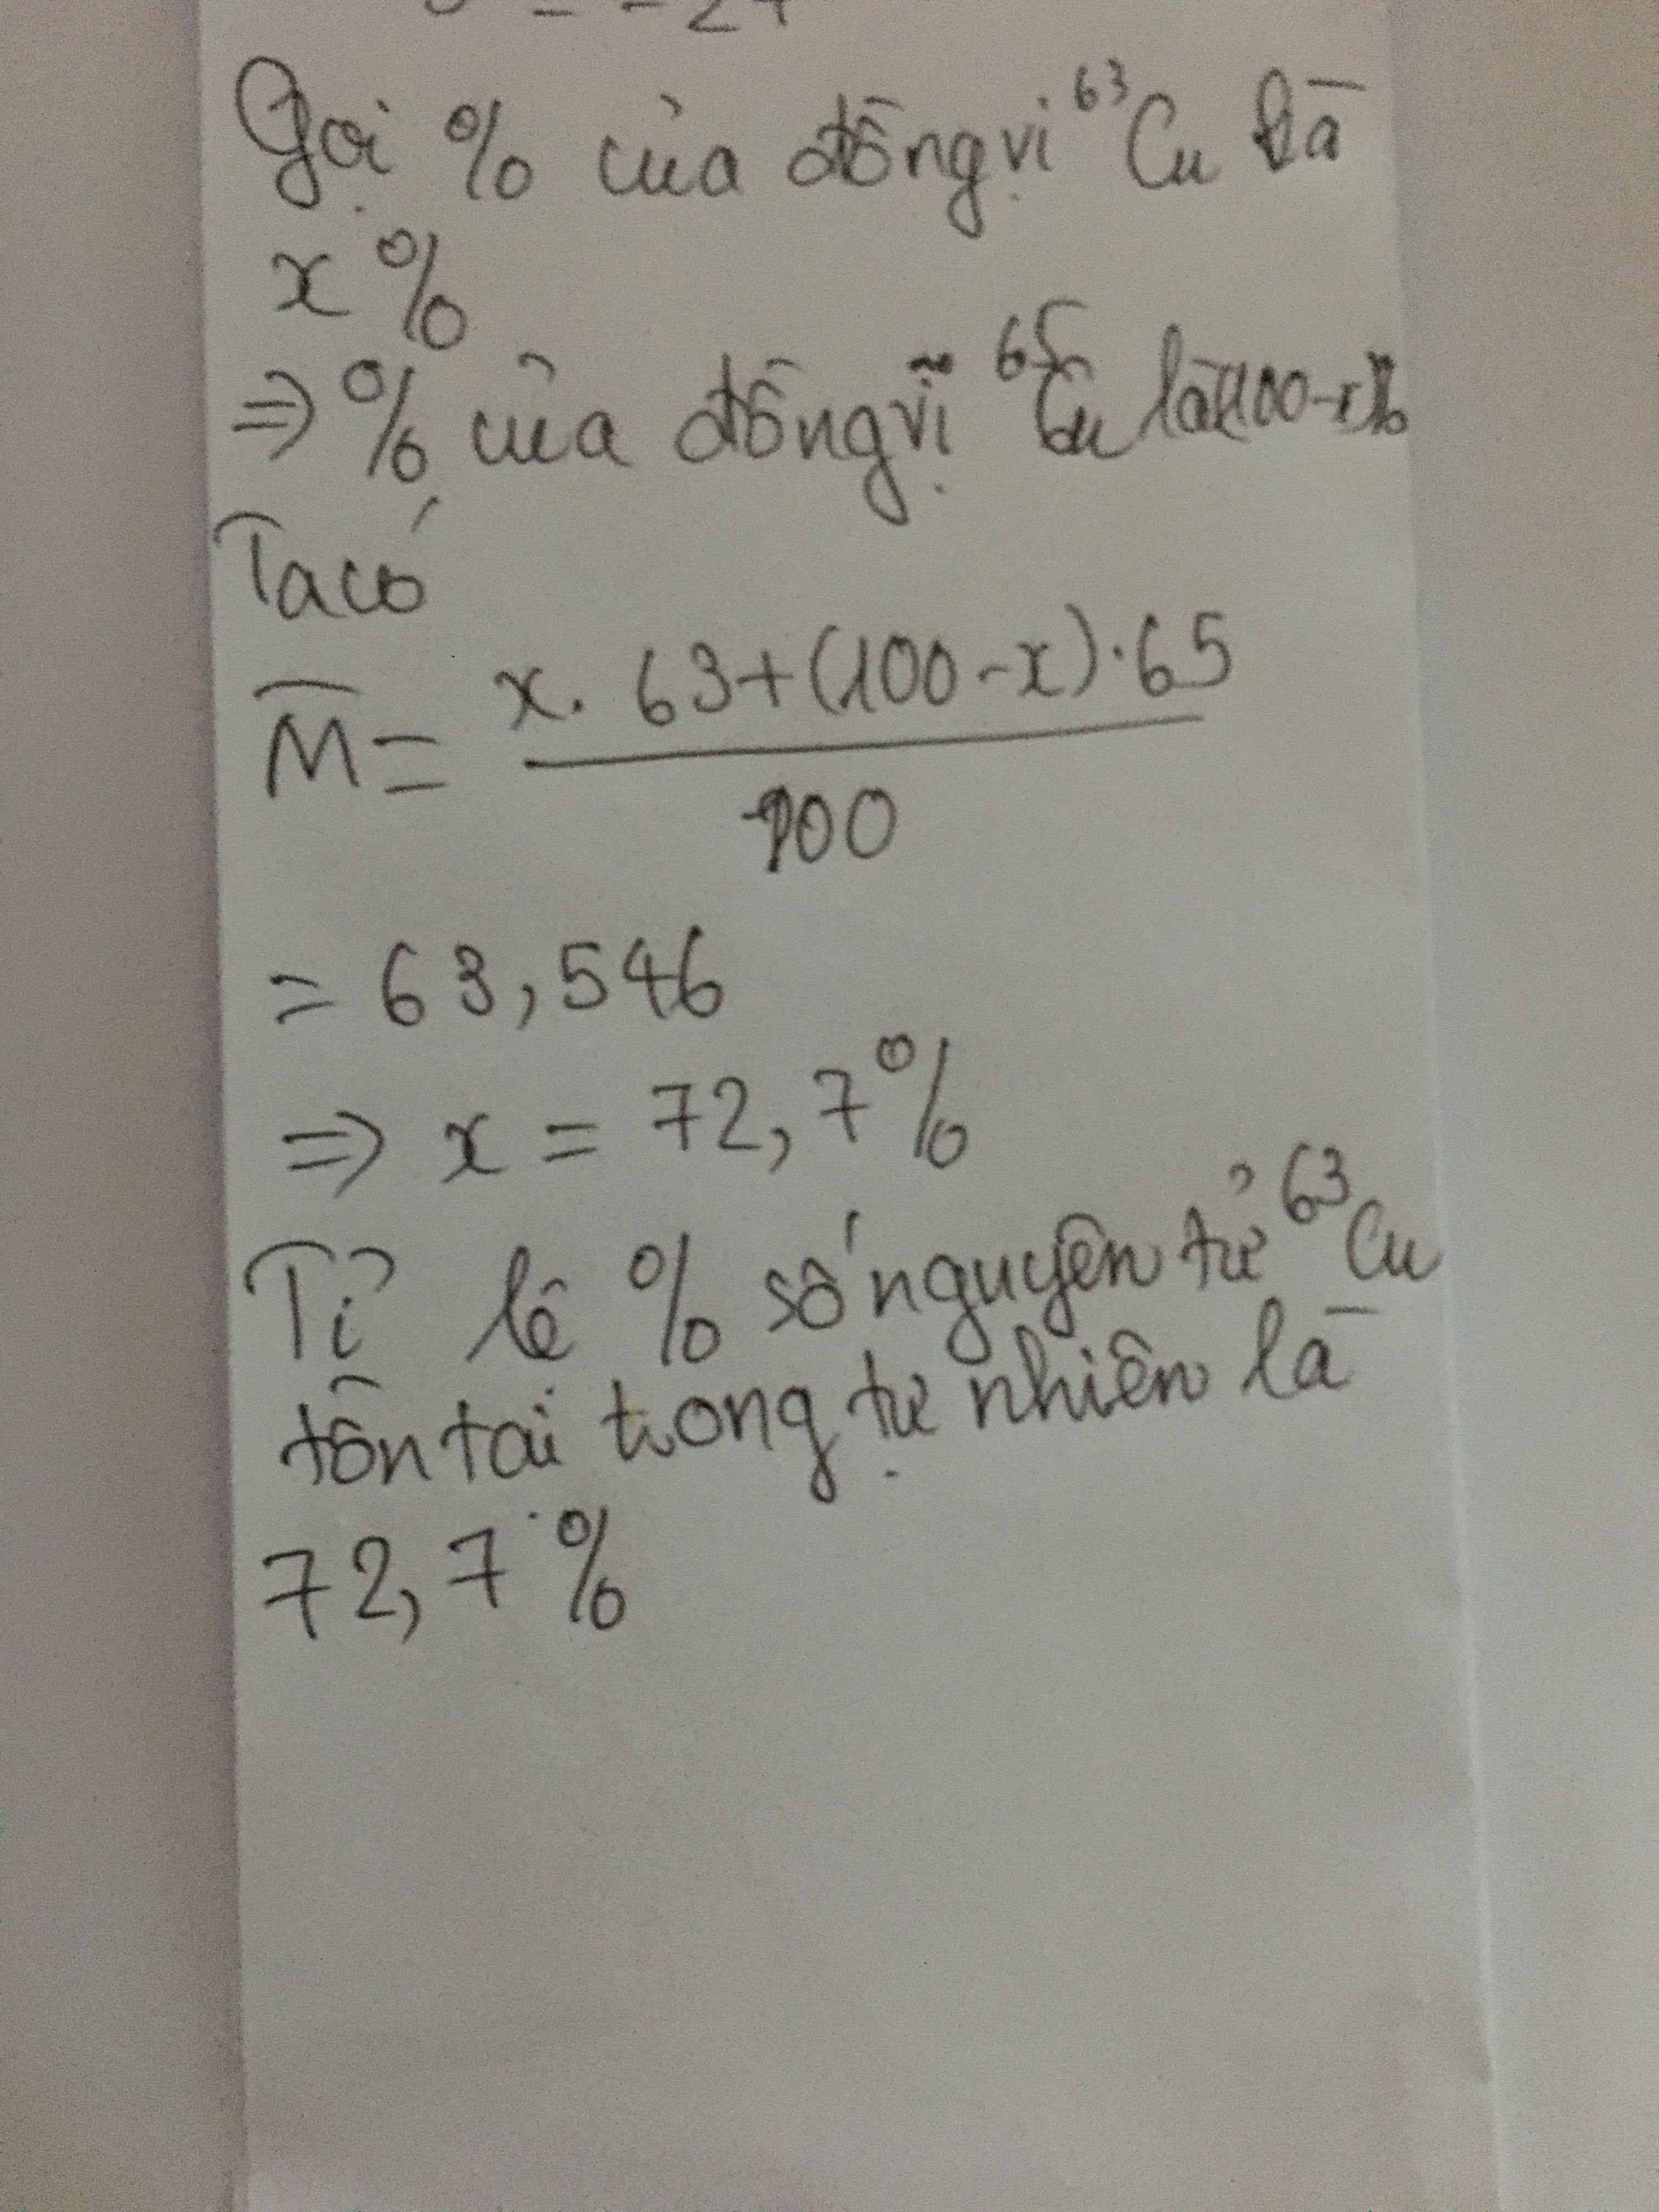 Gọi % của đồng vị ⁶³Cu là
x %
=> % của đồng vị ⁶⁵Cu là (100-x)%
Ta có
M̅ = x. 63+(100-x).65 / 100
= 63,546
=> x = 72,7%
Tỉ lệ % số nguyên tử ⁶³Cu
tồn tại trong tự nhiên là
72,7%